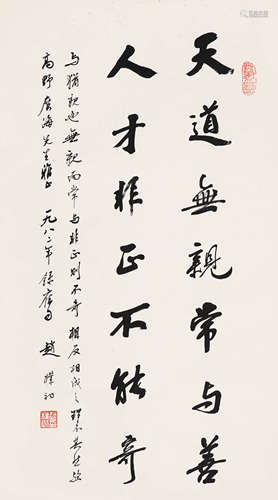 天道無親常与善
人才非正不能奇
与猶親也無親而常与非正則不奇相反相成之理不其然歟
高野 海先生雅正 一九八二年録舊句 趙樸初